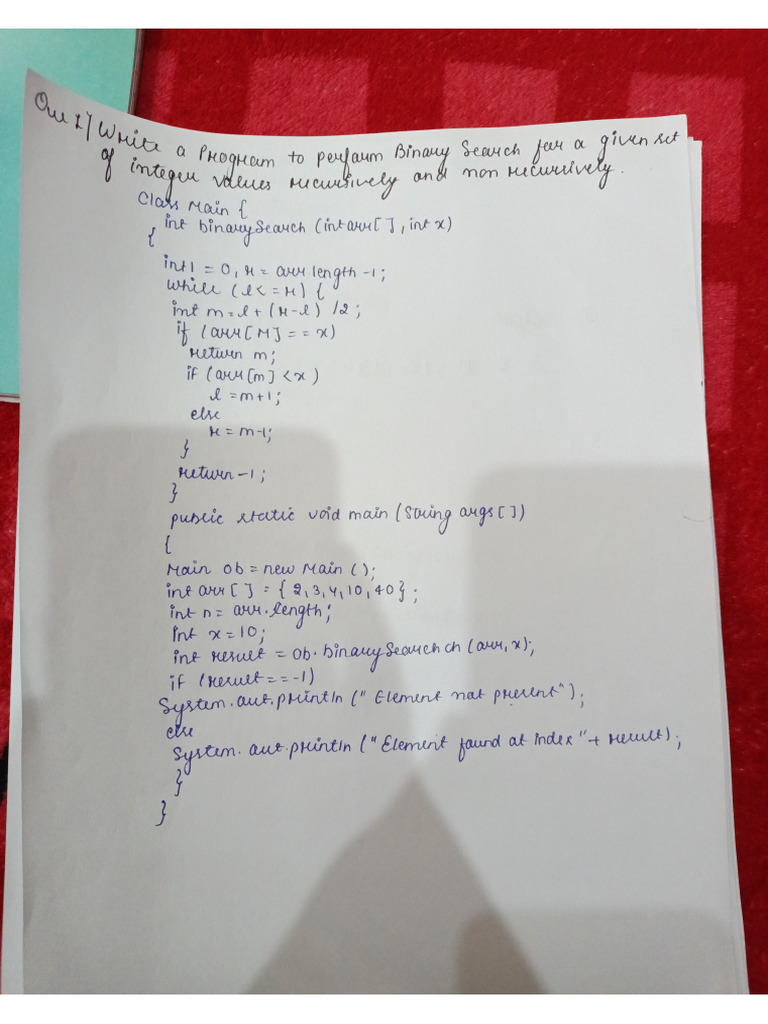 Que 1) Write a Program to perform Binary Search for a given set
of integer values recursively and non recursively.
Class Main {
int binarySearch (int arr[], int x)
{
int l = 0, r = arr length -1;
while (l <= r) {
int m = l + (r-l) /2;
if (arr[M] == x)
return m;
if (arr[m] < x)
l = m+1;
else
r = m-1;
}
return -1;
}
public static void main (String args [])
{
Main ob = new Main ();
int arr [] = { 2, 3, 4, 10, 40};
int n = arr.length;
Int x = 10;
int result = ob. binarySearch ch (arr, x);
if (result == -1)
System.out.println (" Element not present");
else
System.out.println ("Element found at index " + result);
}
}